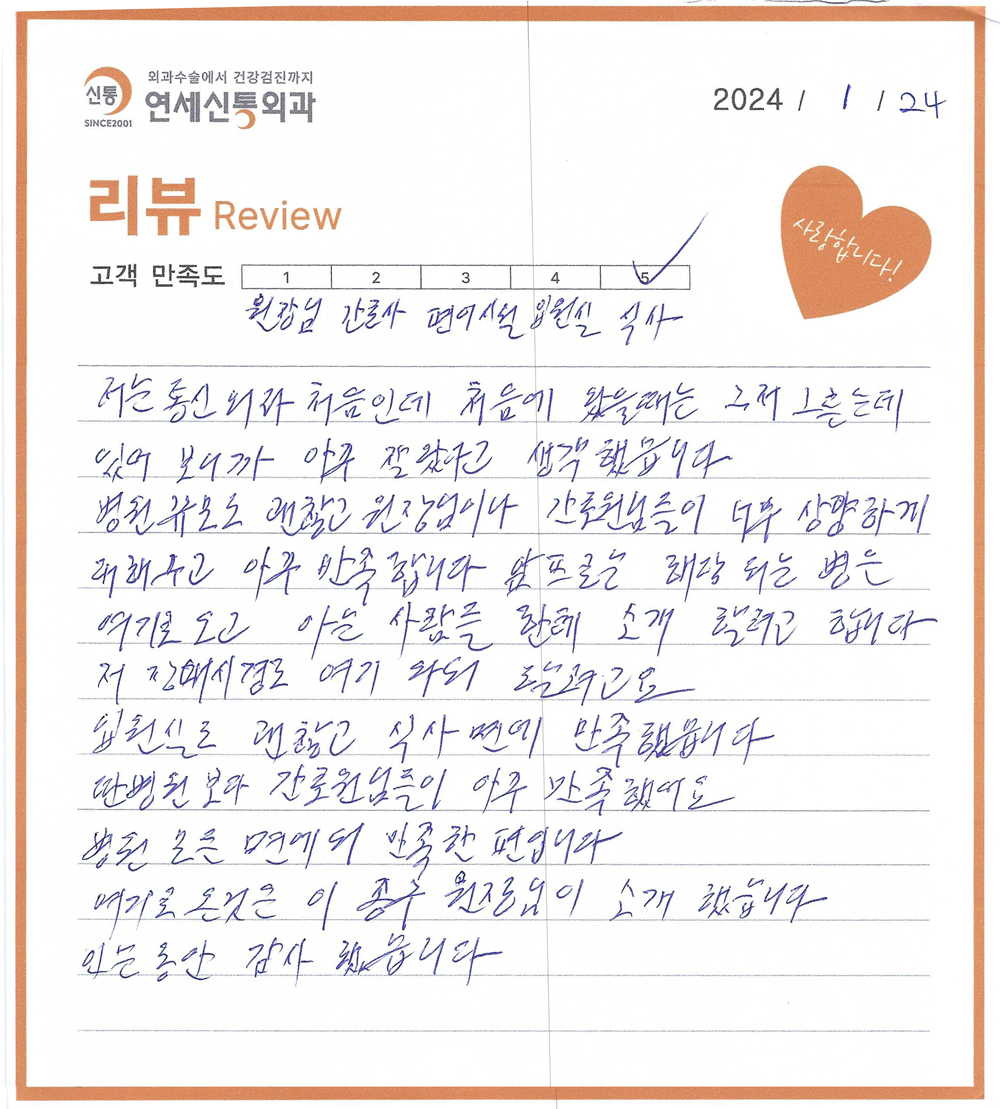 신통
SINCE2001
외과수술에서 건강검진까지
연세신통외과
2024 / 1 / 24
리뷰 Review
사랑합니다!
고객 만족도 1 2 3 4 5
원장님 간호사 편이시설 입원실 식사
저는 통신외과 처음인데 처음에 왔을때는 그저 그른는데
있어 보니까 아주 잘왔다고 생각했읍니다
병원규모도 괜찮고 원장님이나 간호원님들이 너무 상냥하게
대해주고 아주 만족합니다 앞프로는 해당 되는 병은
여기로 오고 아는 사람들 한테 소개 할려고 합니다
저 여기
입원실도 괜찮고 식사 면에 만족했읍니다
딴병원 보다 간호원님들이 아주 만족했어요
병원 모든 면에 만족한 편입니다
여기로 온것은 이 종주 원장님이 소개 했습니다
있는동안 감사 했읍니다